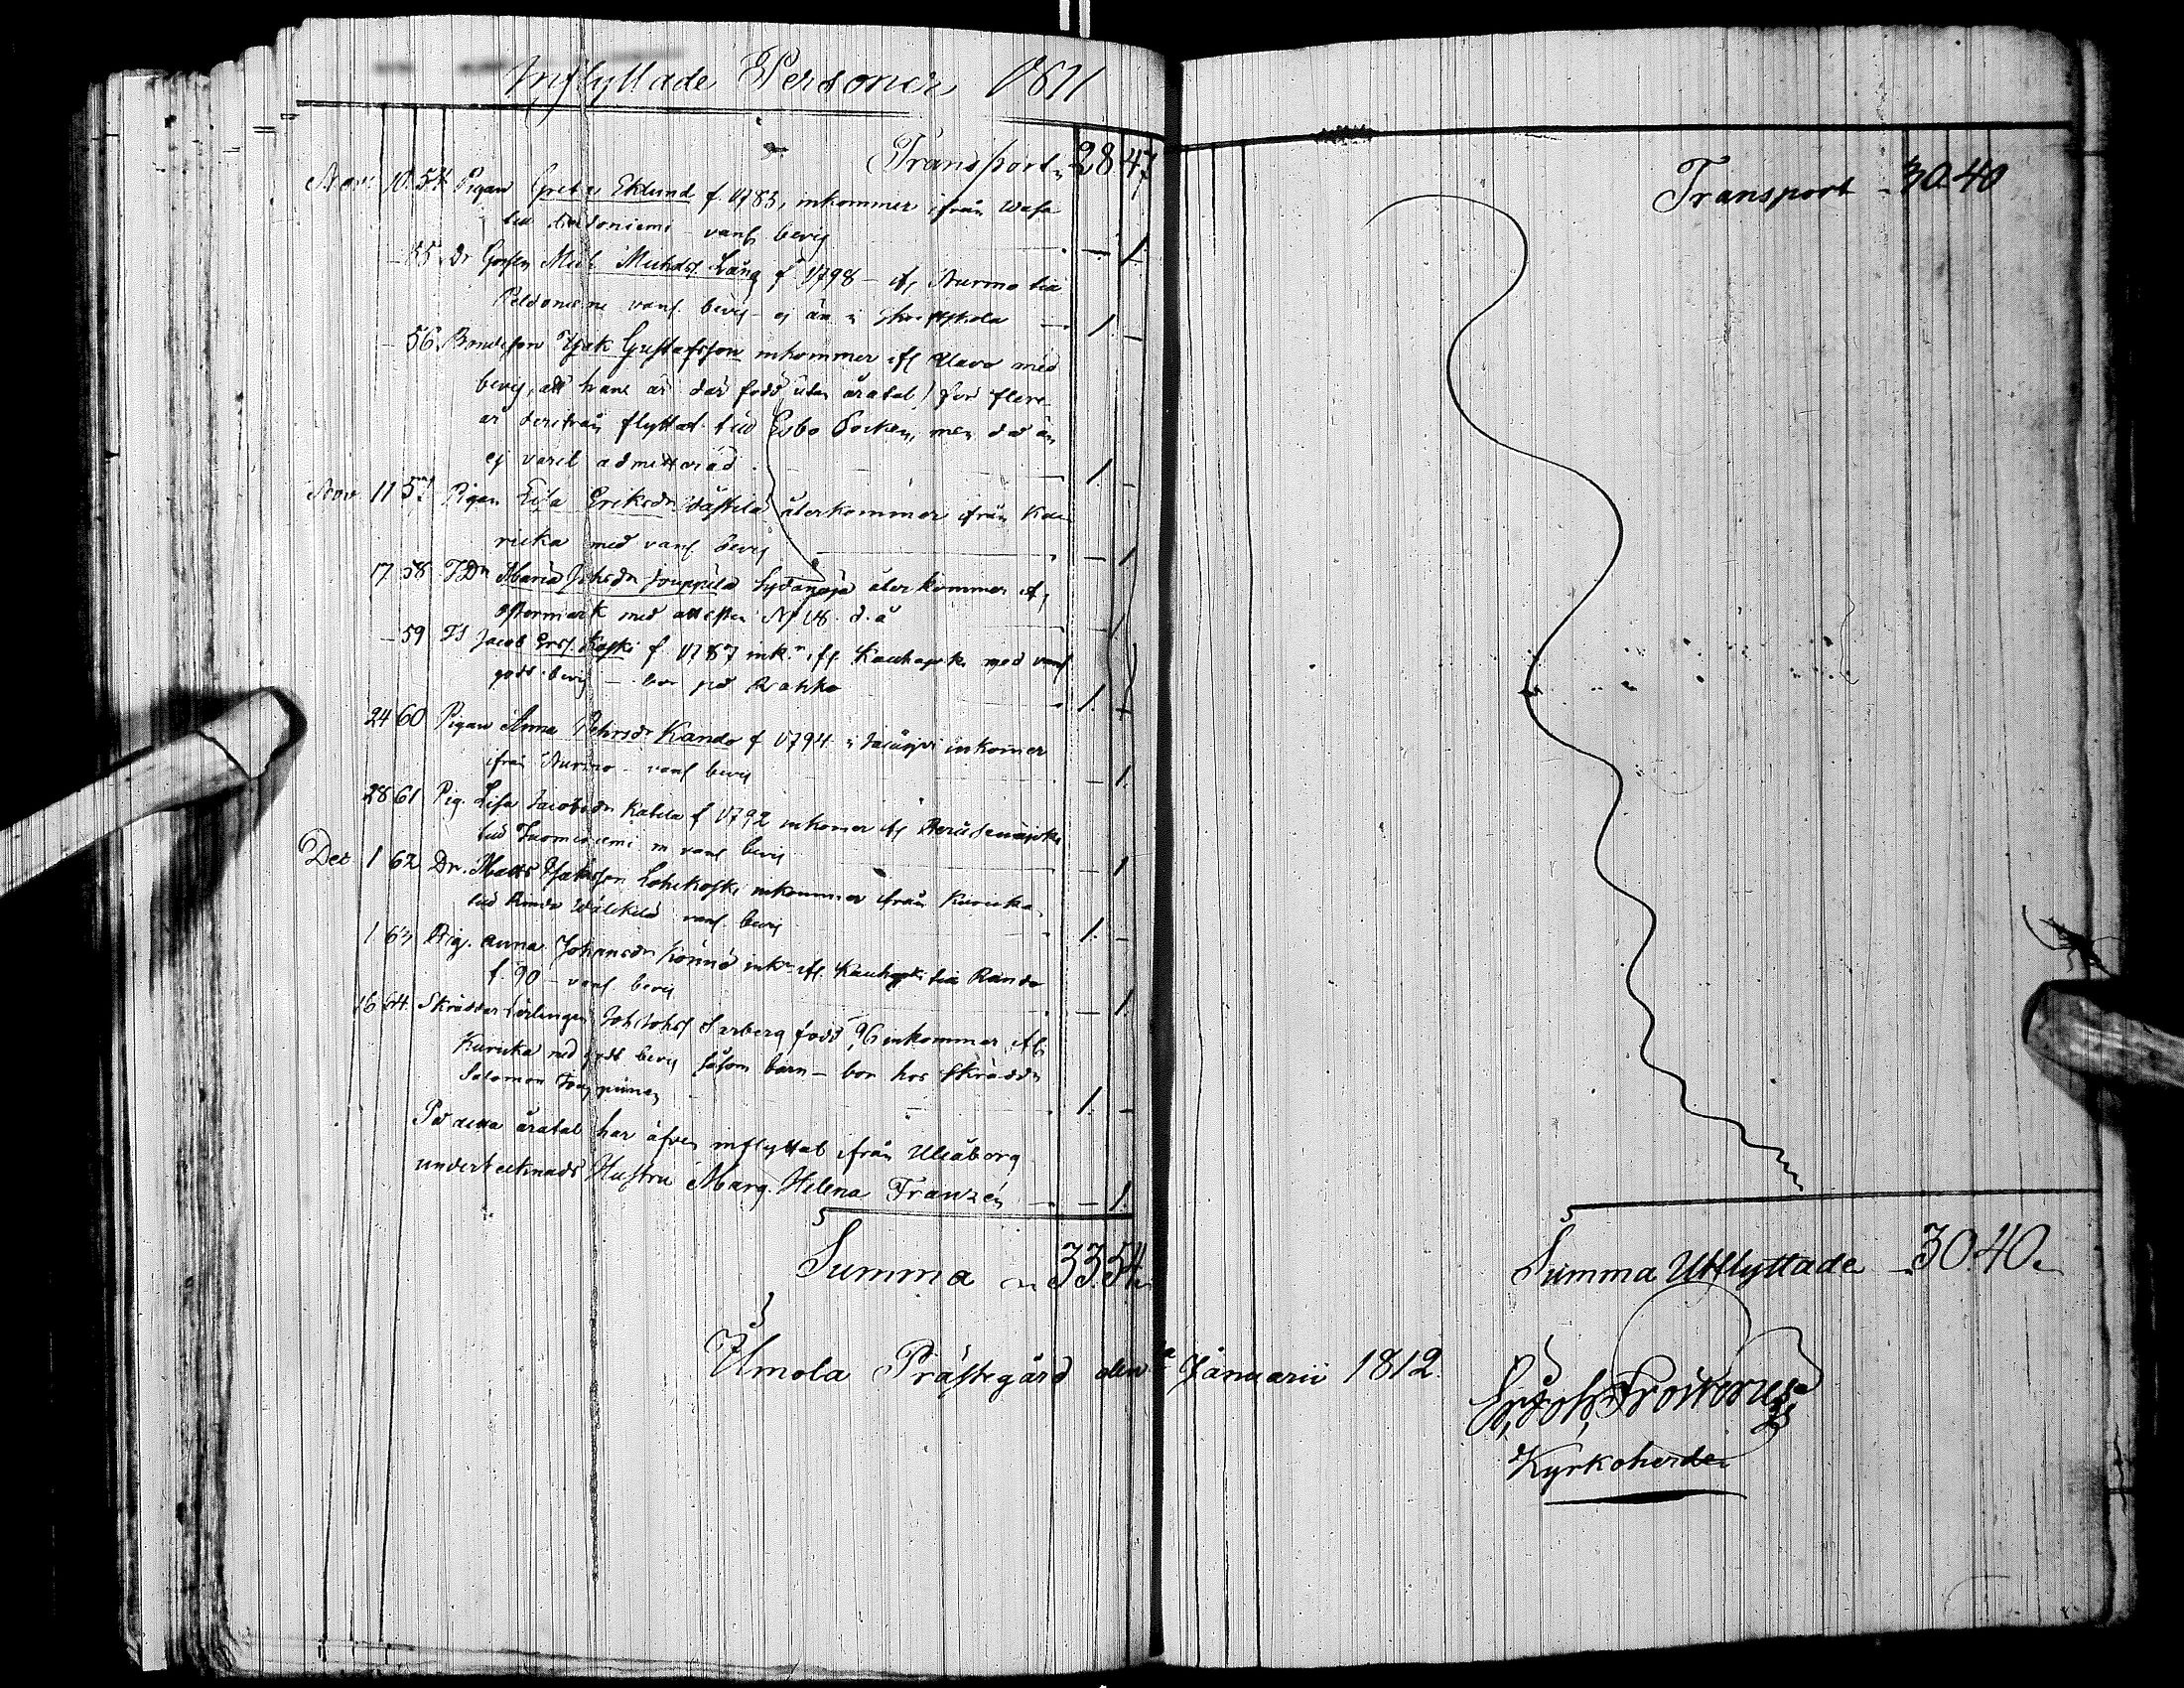 Inflyttade Personer 1811
Transport 28 47
Nov. 10. 54 Pigan Greta Eklund f. 1783, inkommer ifrån Wasa
till vanl. bevis — 1.
— 55. Dr Gossen Mich Michelss. Lång f. 1798 — ifr Nurmo till
Peldoniemi vanl. bevis — ej än i — 1. —
— 56. Bondeson Isak Gustafsson inkommer ifr Alavo med
bevis, att han är där född (utan åratal) för flere
år derifrån flyttat till Esbo Socken, men då än
ej varit admitterad. 1. —
Nov. 11 57 Pigan Lisa Eriksdr återkommer ifrån Kau
ricka med vanl. bevis — 1
17 58 TDr Maria Johsdr Jouppila återkommer ifr
Östermark med attesten No d. å
— 59 TS Jacob Erss. Koski f. 1787 ink. ifr. Kauhajoki med vanl
godt bevis — bor på Rahko 1.
24 60 Pigan Anna Kando f 1794 i inkomer
ifrån Nurmo — vanl bevis — 1.
28 61 Pig. Lisa Jacobsdr f 1792 inkomer ifr
till m vanl bevis — 1
Dec 1 62 Dr. Matts Isaksson inkommer ifrån Kuricka
till vanl. bevis 1. —
1 63 Pig. Anna Johansdr Könnö ink ifr. Kauhajoki till Randa
f. 90 — vanl bevis — 1.
16 64. Skräddar Lärlingen Joh Johss Serberg född 96 inkommer ifr
Kuricka med godt bevis såsom barn — bor hos Skräddr
Salomon 1. —
På detta åratal har äfven inflyttat ifrån Uleåborg
undertecknads Hustru Marg. Helena Franzén — 1.
Summa 33 54
Ilmola Prästegård den Januarii 1812.
Transport 30. 40
Summa Utflyttade 30. 40.
Er. Joh. Frosterus
Kyrkoherde